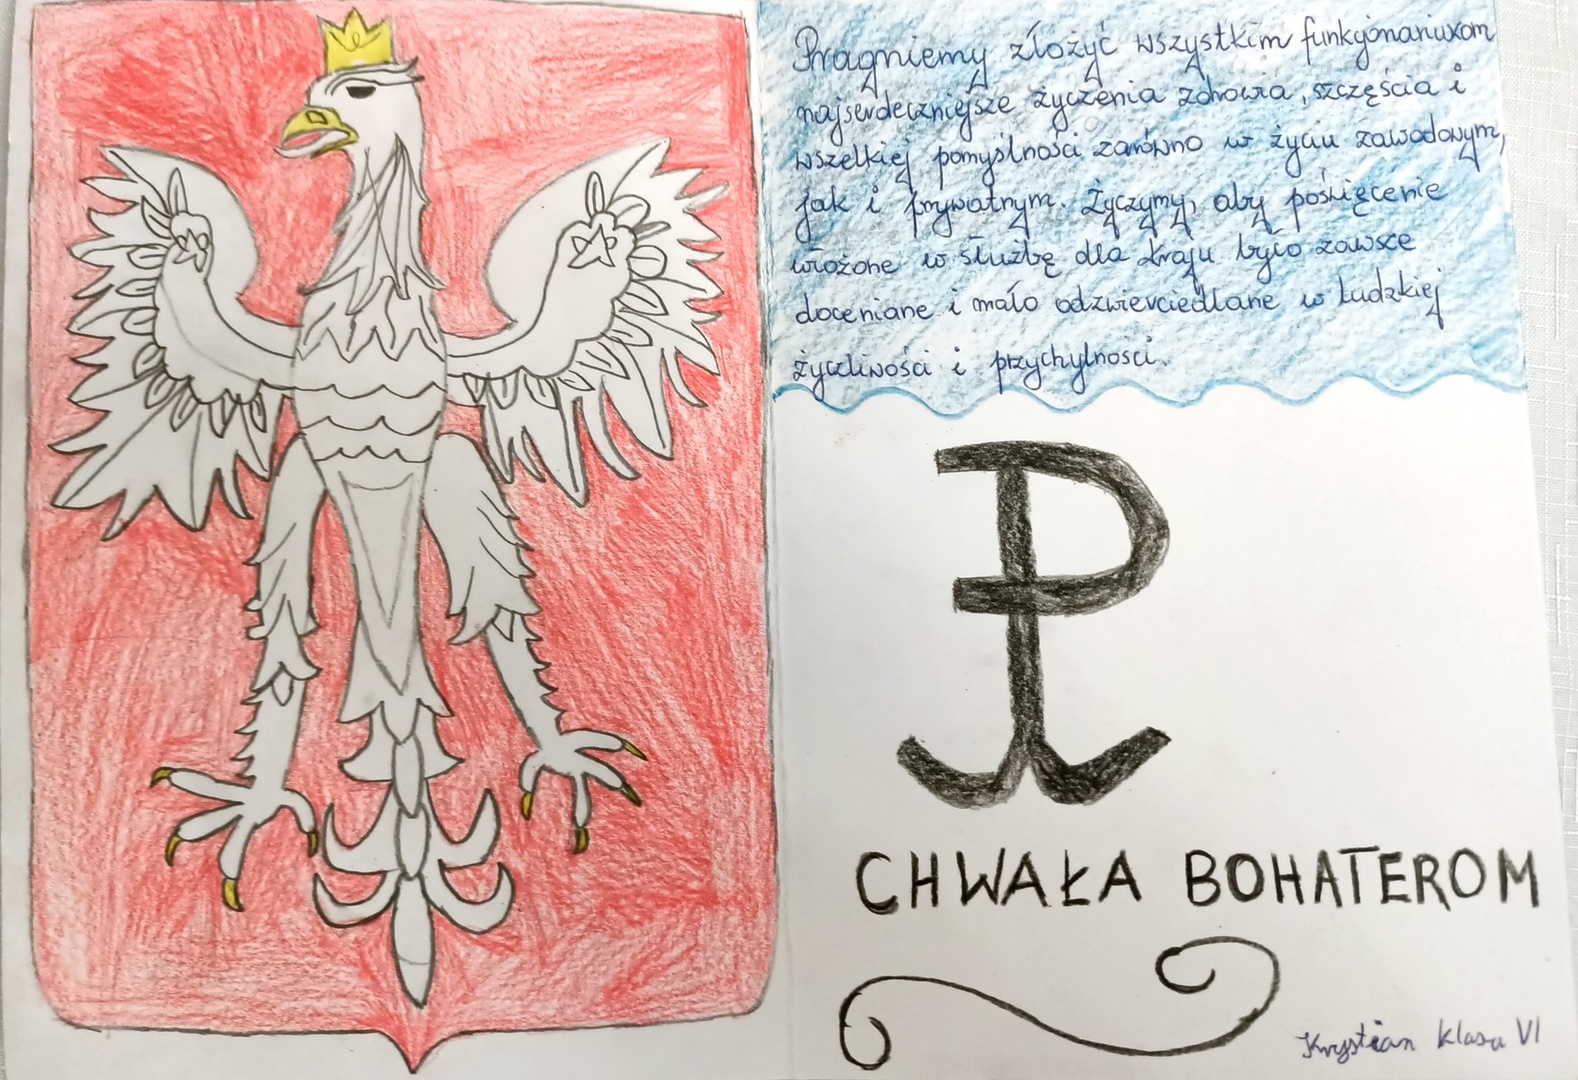 Pragniemy złożyć wszystkim funkcjonariuxom
najserdeczniejsze życzenia zdrowia, szczęścia i
wszelkiej pomyślności zarówno w życiu zawodowym,
jak i prywatnym. Życzymy, aby poświęcenie
włożone w służbę dla kraju było zawsze
doceniane i mało odzwierciedlane w ludzkiej
życzliwości i przychylności.
CHWAŁA BOHATEROM
Krystian klasa VI